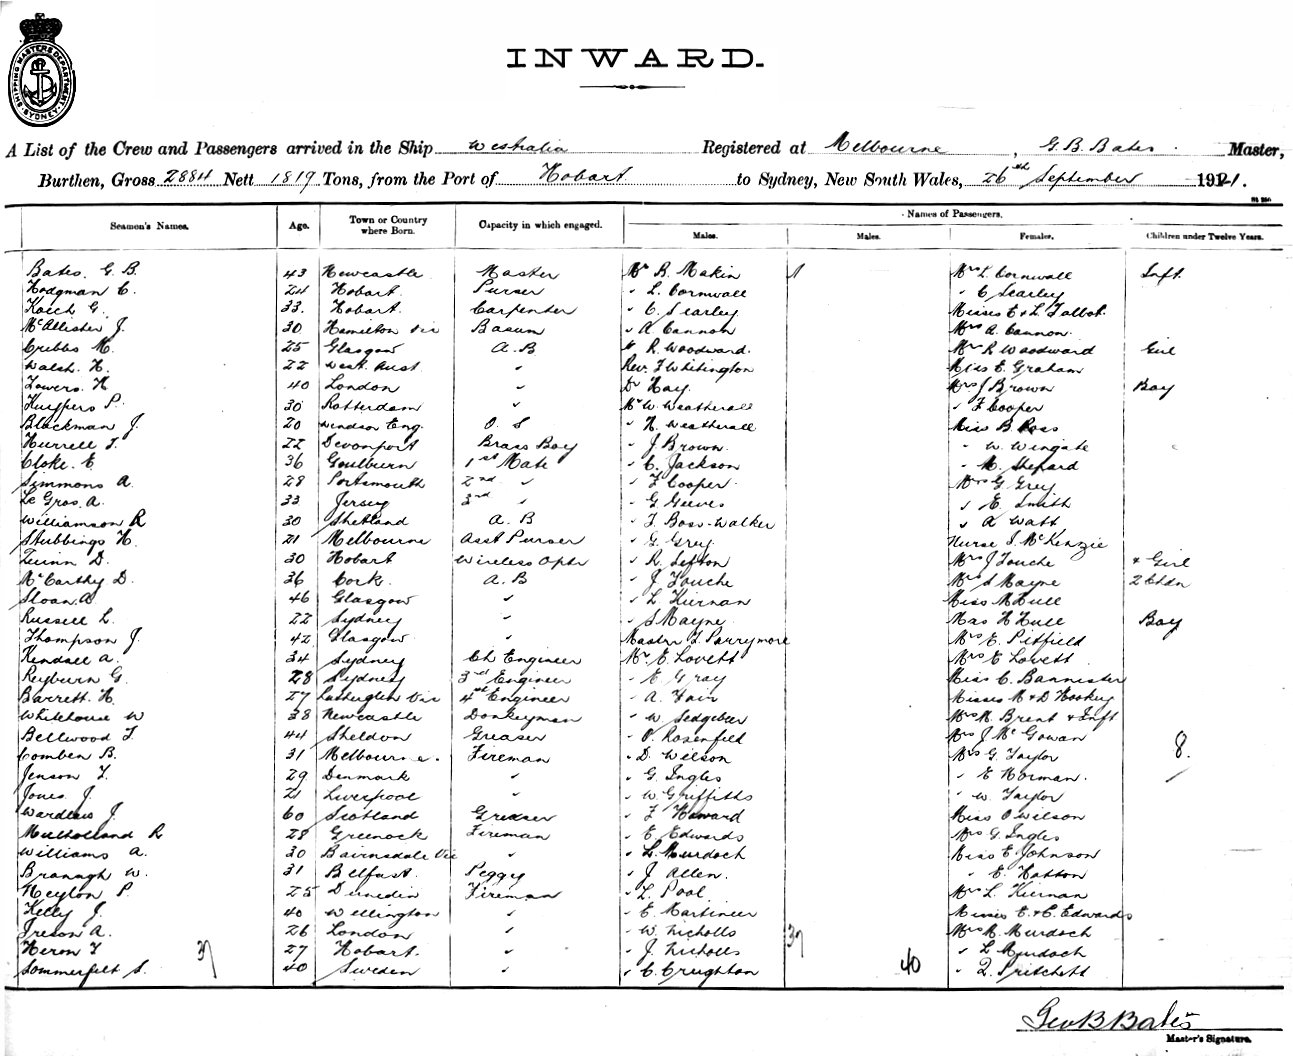 SHIPPING MASTERS DEPARTMENT SYDNEY
INWARD.
A List of the Crew and Passengers arrived in the Ship Westralia Registered at Melbourne, G. B. Bates Master,
Burthen, Gross 2884 Nett 1819 Tons, from the Port of Hobart to Sydney, New South Wales, 26th September 1921.
Seamen's Names. Age. Town or Country where Born. Capacity in which engaged. Names of Passengers.
Males. Males. Females. Children under Twelve Years.
Bates. G. B. 43 Newcastle Master Mr R. Makin 1 Mrs L. Cornwall Inft.
Hodgman C. 24 Hobart Purser " L. Cornwall " C Searley
Koech G. 33. Hobart. Carpenter " C. Searley Misses E & L Talbot
McAllister J. 30 Hamilton Vic " A Cannon Mrs A. Cannon.
Cribbs M. 25 Glasgow A.B " R. Woodward. Mrs R Woodward Girl
Walsh. H. 22 West. Aust. " Rev. F Whitington Miss E. Graham
Towers. H 40 London " Dr Hay. Mrs J Brown Boy
Kuypers P. 30 Rotterdam " Mr W. Weatherall " F Cooper
Blackman J. 20 Windsor Eng. O. S " H. Weatherall Miss B. Ross
Hurrell T. 22 Devonport Brass Boy " J Brown " W. Wingate
Cloke. E 36 Goulburn 1st Mate " C. Jackson " M. Shepard
Simmons A. 28 Portsmouth 2nd " " F Cooper. Mrs G. Grey
Le Gros. A. 33 Jersey 3rd " " G. Geeves " E. Smith
Williamson R 30 Shetland A. B " F. Boss-Walker " A Watt
Stubbings H. 21 Melbourne Asst Purser " G. Grey Nurse S. McKenzie
Quinn D. 30 Hobart Wireless Optr " R. Sefton Mrs J Touche & Girl
McCarthy D. 36 Cork. A. B " J Touche Mrs S Mayne 2 Chldn
Sloan. A 46 Glasgow " " L Kiernan Miss M Hull
Russell L. 22 Sydney " " S Mayne. Mas H Hull Boy
Thompson J. 42 Glasgow " Master J. Parrymore Mrs E. Pitfield
Kendall A. 34 Sydney Ch Engineer Mr E. Lovett Mrs E Lovett
Reyburn G. 28 Sydney 3rd Engineer " E Gray Miss C. Bannister
Barrett. H. 27 Rutherglen Vic 4th Engineer " A. Fair Misses M & D Hookey
Whitehouse W 38 Newcastle Donkeyman " W. Sedgeber Mrs M. Brent & Inft
Bellwood T 44 Sheldon Greaser " P. Rosenfeld Mrs J McGowan 8.
Comben B. 31 Melbourne. Fireman " D. Wilson Mrs G. Taylor
Jenson T. 29 Denmark " " G. Ingles " E Norman.
Jones J. 21 Liverpool " " W Griffiths " W. Taylor
Wardlaw J. 60 Scotland Greaser " F Howard Miss O Wilson
Mulholland R 28 Greenock Fireman " E. Edwards Mrs G. Ingles
Williams A. 30 Bairnsdale Vic " " L. Murdoch Miss E Johnson
Branagh W. 31 Belfast. Peggy " J Allen. " E. Hatton
Heylon P. 25 Dunedin Fireman " L. Pool. Mrs L. Kiernan
Kelly J. 40 Wellington " " E. Martineer Misses E. & C. Edwards
Ireson A. 26 London " " W. Nicholls Mrs M. Murdoch
Heron T 37 27 Hobart. " " J. Nicholls 37 " L Murdoch
Sommerfelt S. 40 Sweden " " C. Creighton 40 " Q. Pritchett
Geo B Bates
Master's Signature.